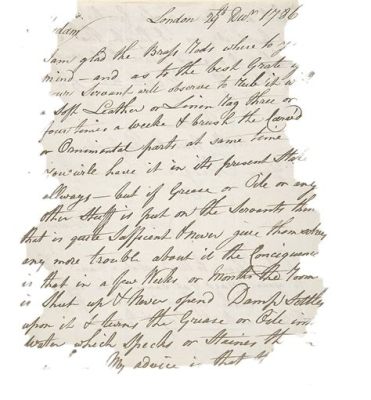 London 29th Decr 1786
dam
I am glad the Brass Rods where to y
mind - and as to the best Grate y
ours Servant will observe to Rub it w
a Soft Leather or Linen Rag three or
four times a weeke & brush the Carved
or Ornimental parts at same time
you will have it in its present State
allways - but if Grease or Oile or any
other Stuff is put on the Servants think
that is quite Sufficent & never give them
any more trouble about it the Conciquence
is that in a few Weeks or Months the Room
is Shut up & Never opend Damp Settles
upon it & turns the Grease or Oile into
Water which Specks or Staines th
My advice is that